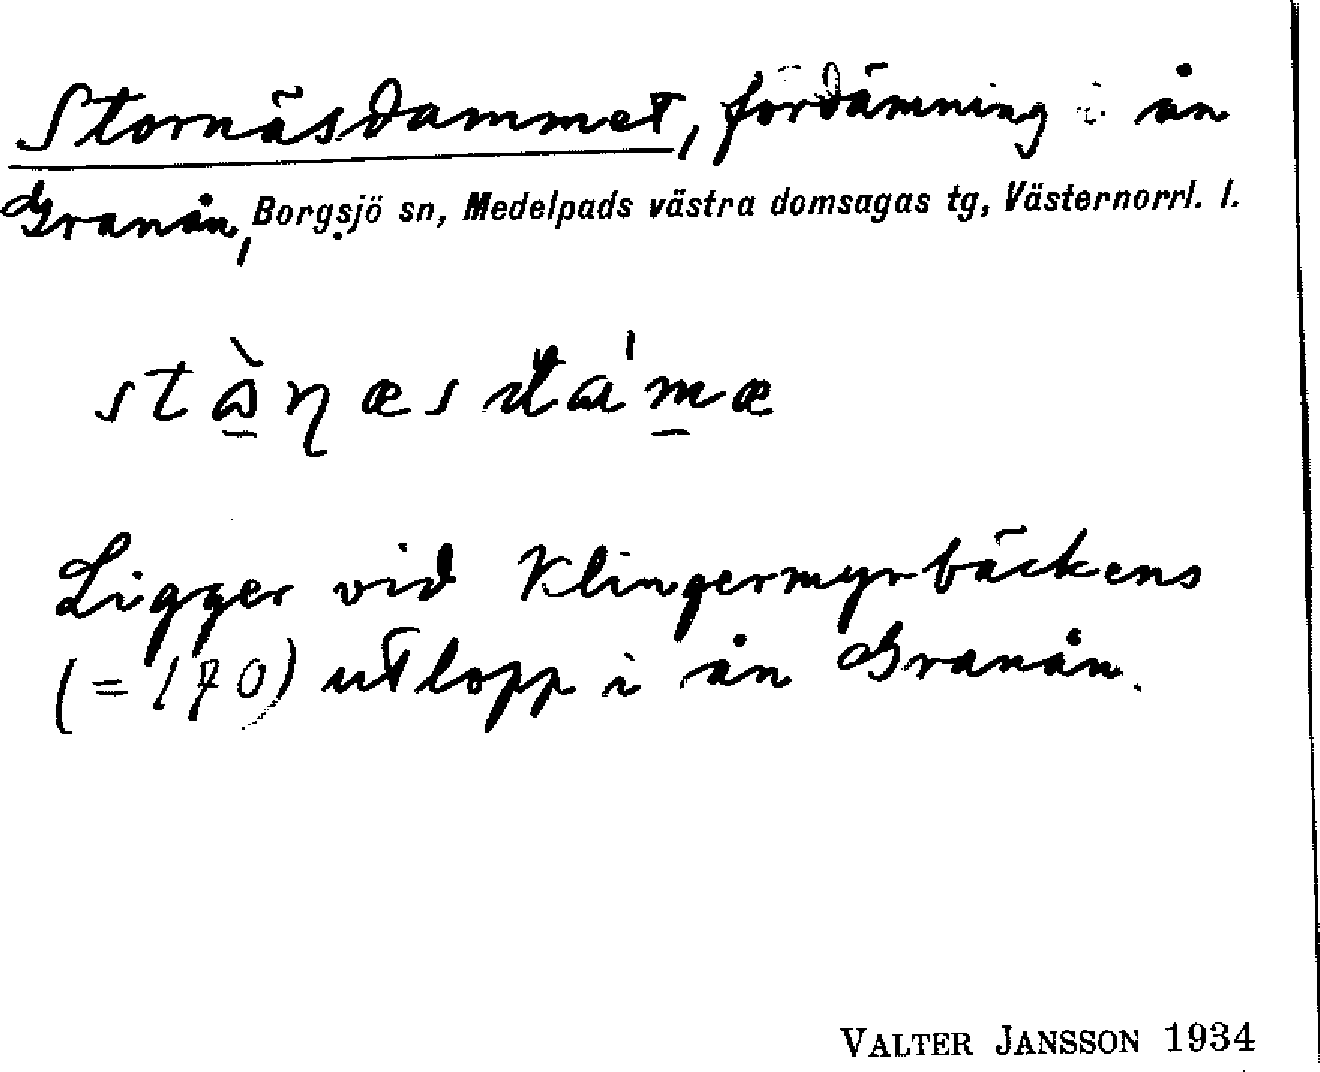 Stornäsdammet, fördämning i ån
Granån, Borgsjö sn, Medelpads västra domsagas tg, Västernorrl. l.
Ligger vid Klingermyrbäckens
(= 170) utlopp i ån Granån.
VALTER JANSSON 1934